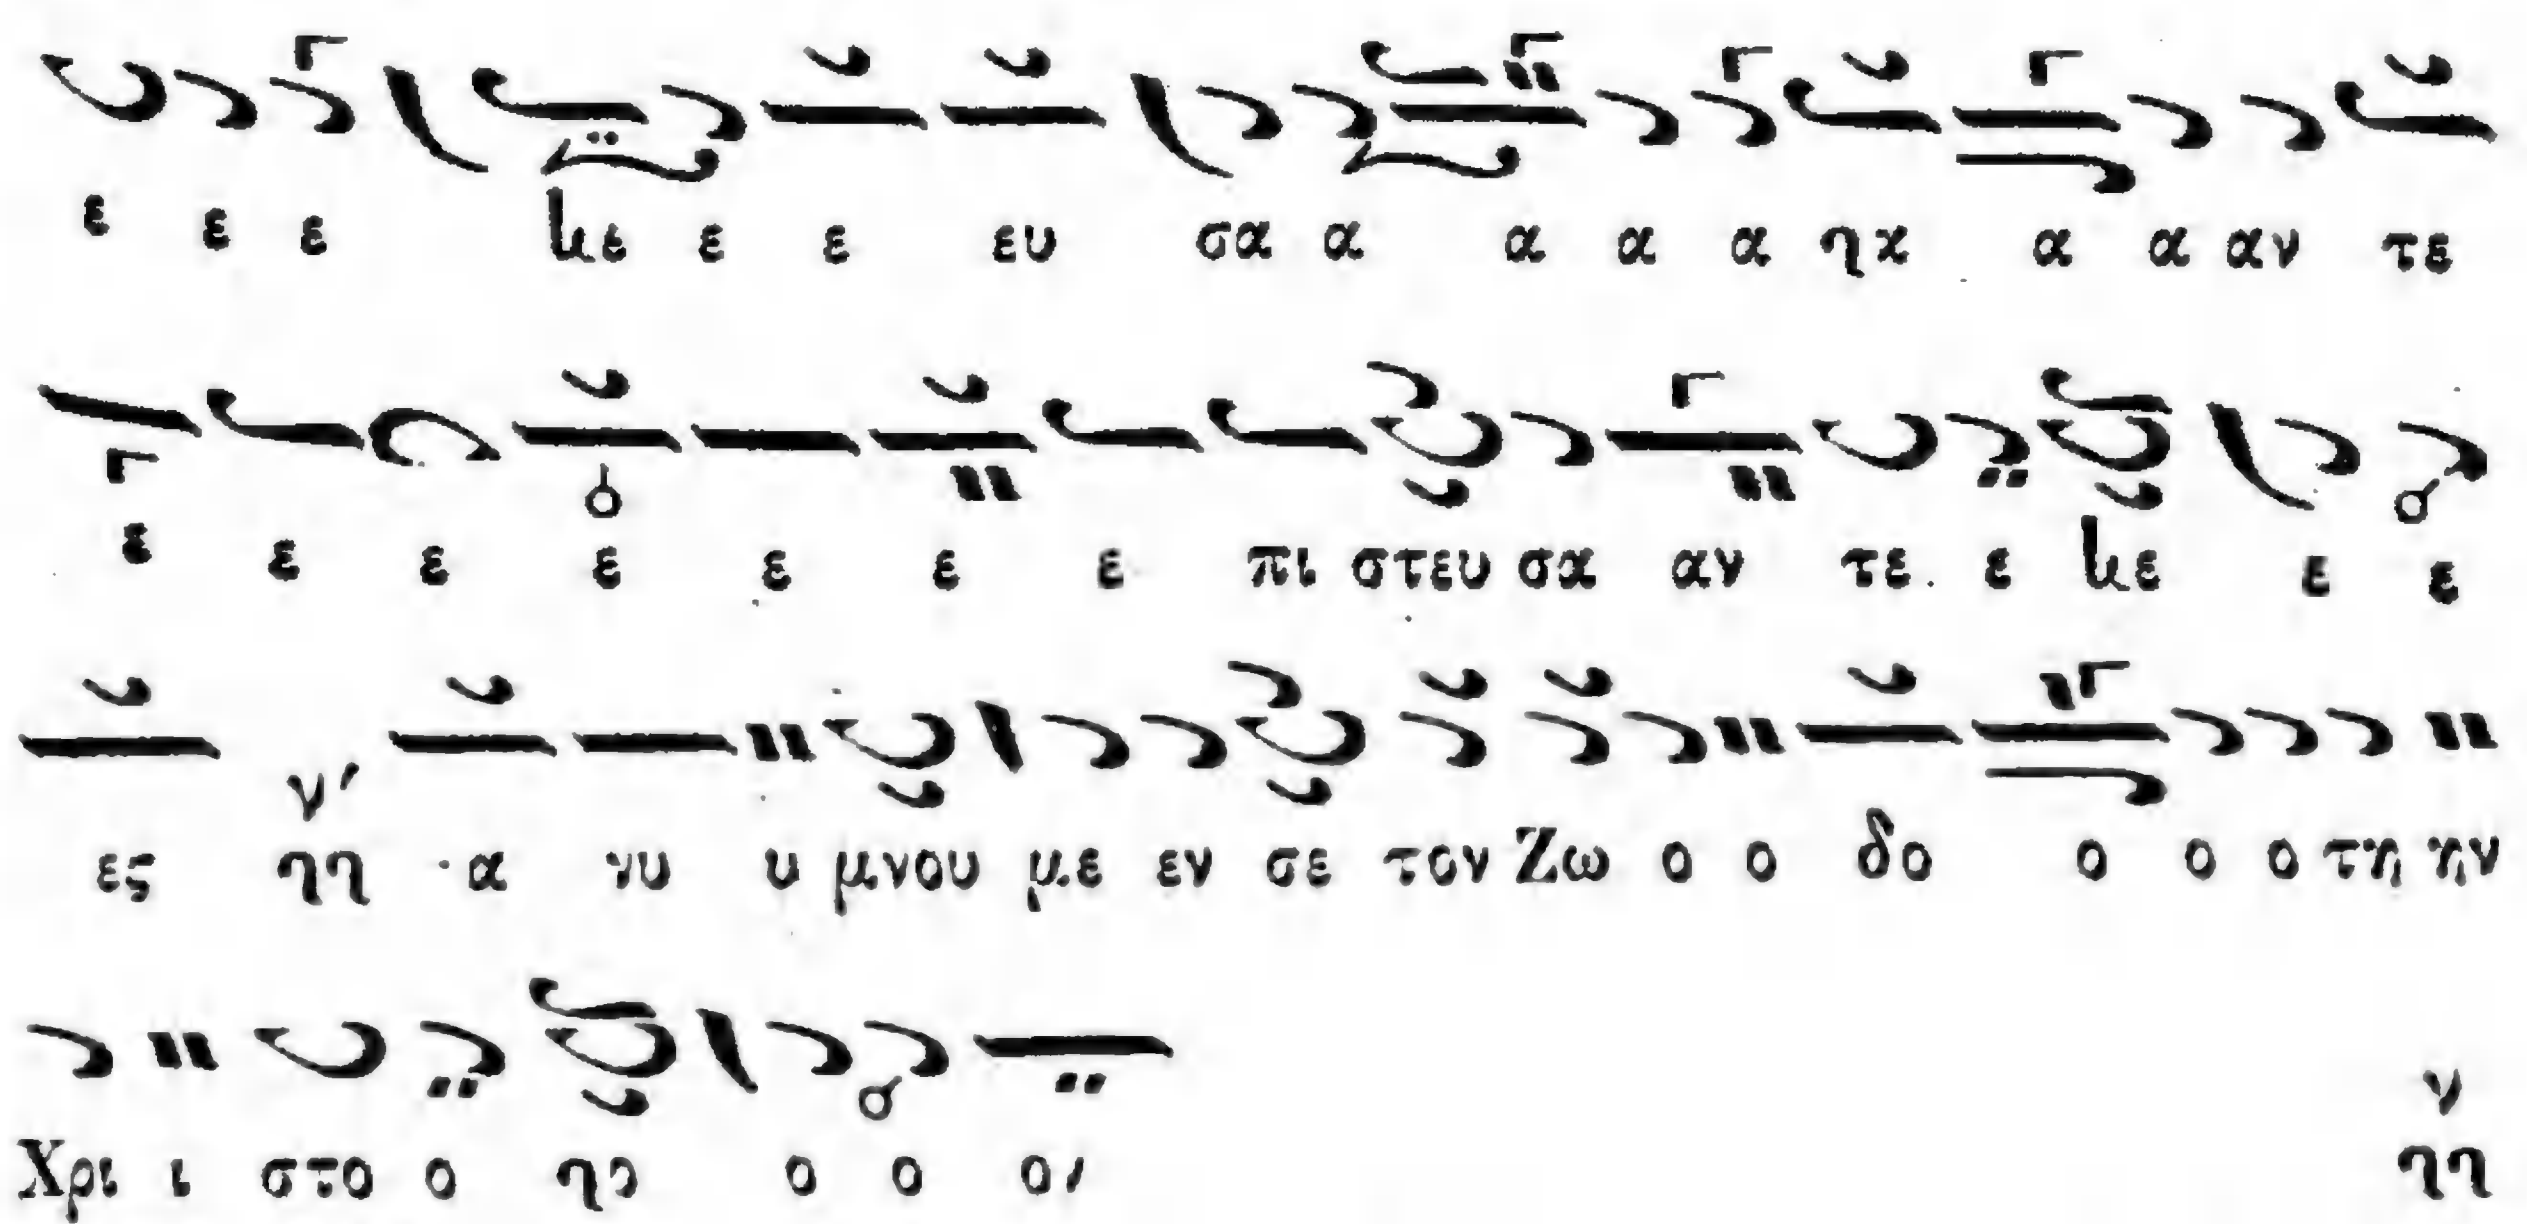 ε ε ε κε ε ε ευ σα α α α α ηκ α α αν τε
ε ε ε ε ε ε ε πι στευ σα αν τε ε κε ε ε
ες ηη α νυ υ μνου με εν σε τον Ζω ο ο δο ο ο ο τη ην
Χρι ι στο ο ηο ο ο ον ηη